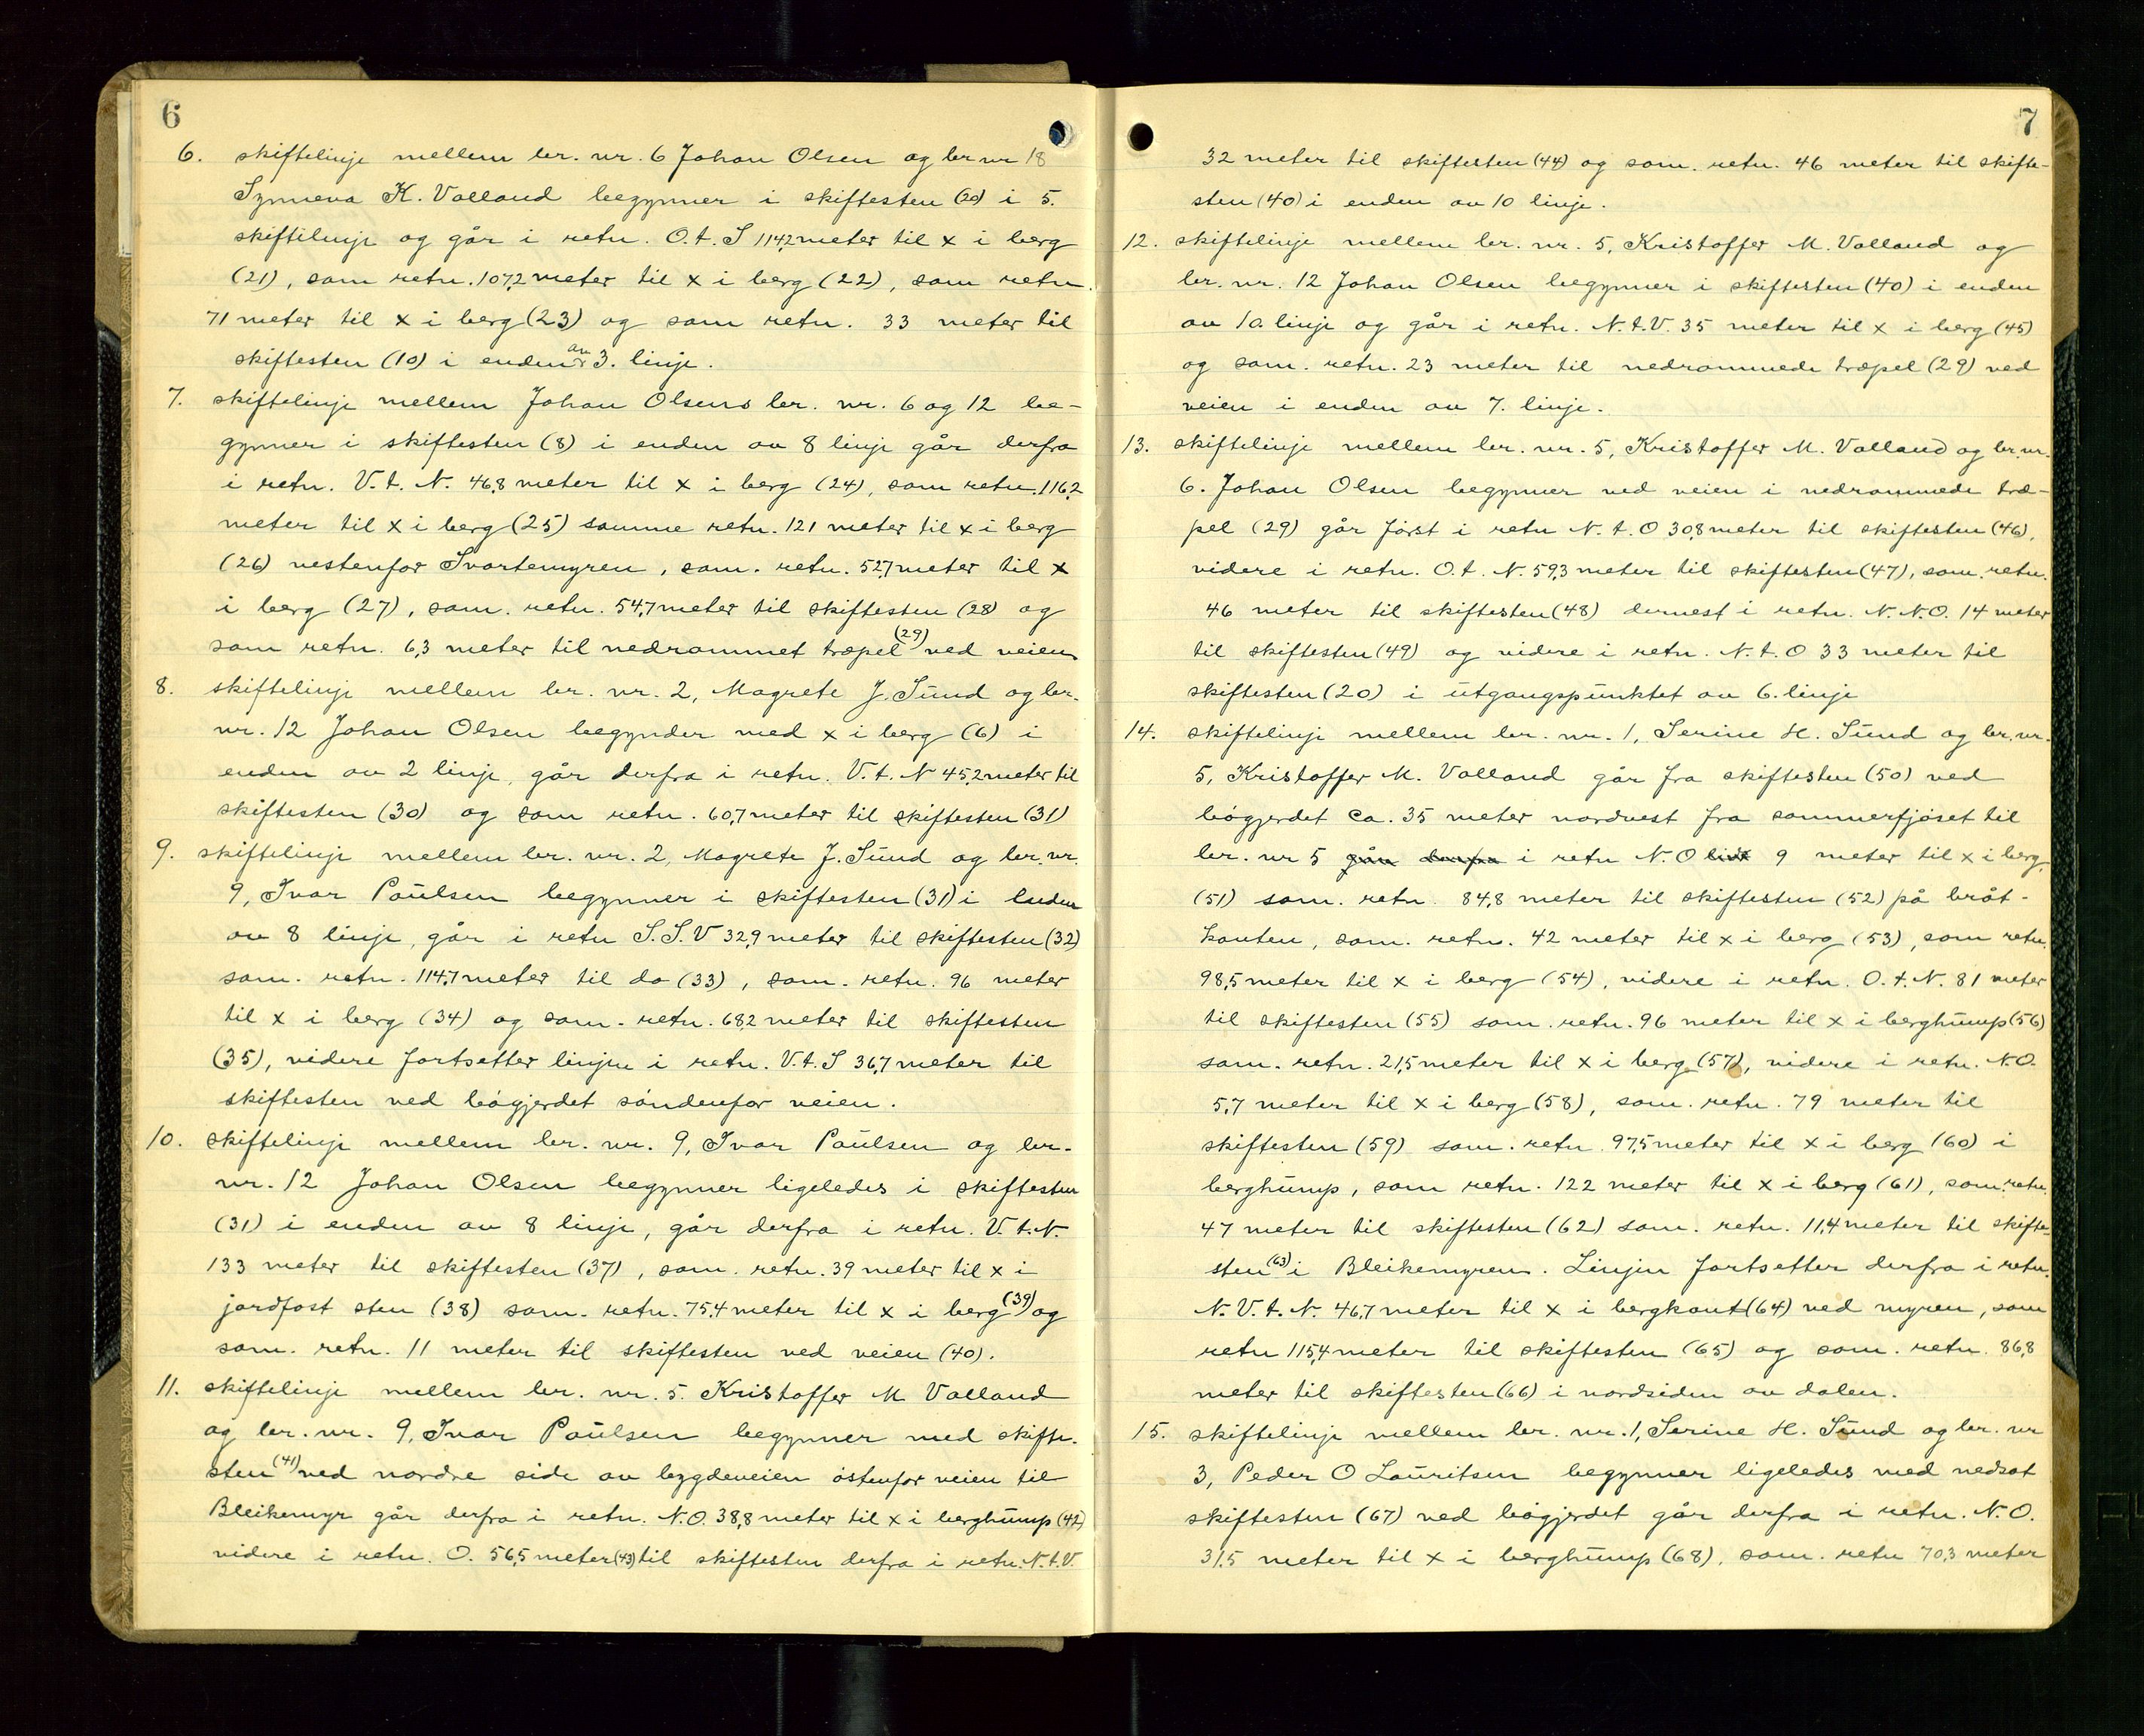 6
6. skiftelinje mellem br. nr. 6 Johan Olsen og br nr 18
Synneva K. Valland begynner i skiftesten (20) i 5.
skiftelinje og går i retn. O.t. S 114,2 meter til x i berg
(21), sam retn. 107,2 meter til x i berg (22), sam retn.
71 meter til x i berg (23) og sam retn. 33 meter til
skiftesten (10) i enden av 3. linje.
7. skiftelinje mellem Johan Olsens br. nr. 6 og 12 be-
gynner i skiftesten (8) i enden av 8 linje går derfra
i retn. V. t. N. 46,8 meter til x i berg (24), sam retn. 116,2
meter til x i berg (25) samme retn. 121 meter til x i berg
(26) vestenfor Svartemyren, sam. retn. 52,7 meter til x
i berg (27), sam. retn. 54,7 meter til skiftesten (28) og
sam retn. 6,3 meter til nedrammet træpel (29) ved veien
8. skiftelinje mellem br. nr. 2, Magrete J. Sund og br.
nr. 12 Johan Olsen begynder med x i berg (6) i
enden av 2 linje, går derfra i retn. V. t. N 45,2 meter til
skiftesten (30) og sam retn. 60,7 meter til skiftesten (31)
9. skiftelinje mellem br. nr. 2, Magrete J. Sund og br. nr.
9, Ivar Paulsen begynner i skiftesten (31) i enden
av 8 linje, går i retn S. S. V 32,9 meter til skiftesten (32)
sam. retn. 114,7 meter til do (33), sam. retn. 96 meter
til x i berg (34) og sam. retn. 68,2 meter til skiftesten
(35), videre fortsetter linjen i retn. V. t. S 36,7 meter til
skiftesten ved bøgjerdet søndenfor veien.
10. skiftelinje mellem br. nr. 9, Ivar Paulsen og br.
nr. 12 Johan Olsen begynner ligeledes i skiftesten
(31) i enden av 8 linje, går derfra i retn. V. t. N.
133 meter til skiftesten (37), sam. retn. 39 meter til x i
jordfast sten (38) sam. retn. 75,4 meter til x i berg (39) og
sam. retn. 11 meter til skiftesten ved veien (40).
11. skiftelinje mellem br. nr. 5. Kristoffer M Valland
og br. nr. 9, Ivar Paulsen begynner med skifte-
sten (41) ved nordre side av bygdeveien østenfor veien til
Bleikemyr går derfra i retn. N.O. 38,8 meter til x i berghump (42)
videre i retn. O. 56,5 meter (43) til skiftesten derfra i retn. N. t. V.
7
32 meter til skiftesten (44) og sam. retn. 46 meter til skifte-
sten (40) i enden av 10 linje.
12. skiftelinje mellem br. nr. 5, Kristoffer M. Valland og
br. nr. 12 Johan Olsen begynner i skiftesten (40) i enden
av 10. linje og går i retn. N. t. V. 35 meter til x i berg (45)
og sam. retn. 23 meter til nedrammede træpel (29) ved
veien i enden av 7. linje.
13. skiftelinje mellem br. nr. 5, Kristoffer M. Valland og br. nr.
6. Johan Olsen begynner ved veien i nedrammede træ-
pel (29) går først i retn N. t. O 30,8 meter til skiftesten (46),
videre i retn. O. t. N. 59,3 meter til skiftesten (47), sam. retn.
46 meter til skiftesten (48) dernest i retn. N. N. O. 14 meter
til skiftesten (49) og videre i retn. N. t. O 33 meter til
skiftesten (20) i utgangspunktet av 6. linje
14. skiftelinje mellem br. nr. 1, Serine H. Sund og br. nr.
5, Kristoffer M. Valland går fra skiftesten (50) ved
bøgjerdet ca. 35 meter nordvest fra sommerfjøset til
br. nr 5 går derfra i retn N. O 9 meter til x i berg,
(51) sam. retn. 84,8 meter til skiftesten (52) på bråt-
kanten, sam. retn. 42 meter til x i berg (53), sam retn.
98,5 meter til x i berg (54), videre i retn. O. t. N. 81 meter
til skiftesten (55) sam. retn. 96 meter til x i berghump (56)
sam. retn. 21,5 meter til x i berg (57), videre i retn. N. O.
5,7 meter til x i berg (58), sam. retn. 79 meter til
skiftesten (59) sam. retn. 97,5 meter til x i berg (60) i
berghump, sam retn. 122 meter til x i berg (61), sam. retn.
47 meter til skiftesten (62) sam. retn. 11,4 meter til skifte-
sten (63) i Bleikemyren. Linjen fortsetter derfra i retn.
N. V. t. N. 46,7 meter til x i bergkant (64) ved myren, sam
retn 115,4 meter til skiftesten (65) og sam. retn. 86,8
meter til skiftesten (66) i nordsiden av dalen.
15. skiftelinje mellem br. nr. 1, Serine H. Sund og br. nr
3, Peder O Lauritsen begynner ligeledes med nedsat
skiftesten (67) ved bøgjerdet går derfra i retn. N. O.
31,5 meter til x i berghump (68), sam. retn 70,3 meter